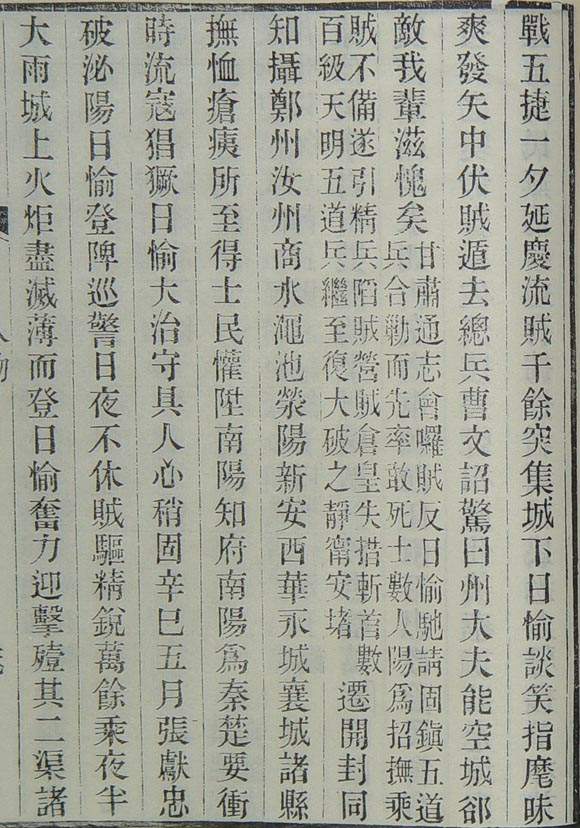 戰五捷一夕延慶流賊千餘突集城下日愉談笑指麾昧
爽發矢中伏賊遁去總兵曹文詔驚曰州大夫能空城郤
敵我輩滋愧矣
甘肅通志會囉賊反日愉馳請固鎮五道
兵合勦而先率敢死士數人陽爲招撫乘
賊不備遂引精兵陷賊營賊倉皇失措斬首數
百級天明五道兵繼至復大破之靜甯安堵
遷開封同
知攝鄭州汝州商水澠池滎陽新安西華永城襄城諸縣
撫恤瘡痍所至得士民懽陞南陽知府南陽爲秦楚要衝
時流寇猖獗日愉大治守具人心稍固辛巳五月張獻忠
破泌陽日愉登陴巡警日夜不休賊驅精銳萬餘乘夜半
大雨城上火炬盡滅薄而登日愉奮力迎擊殪其二渠諸